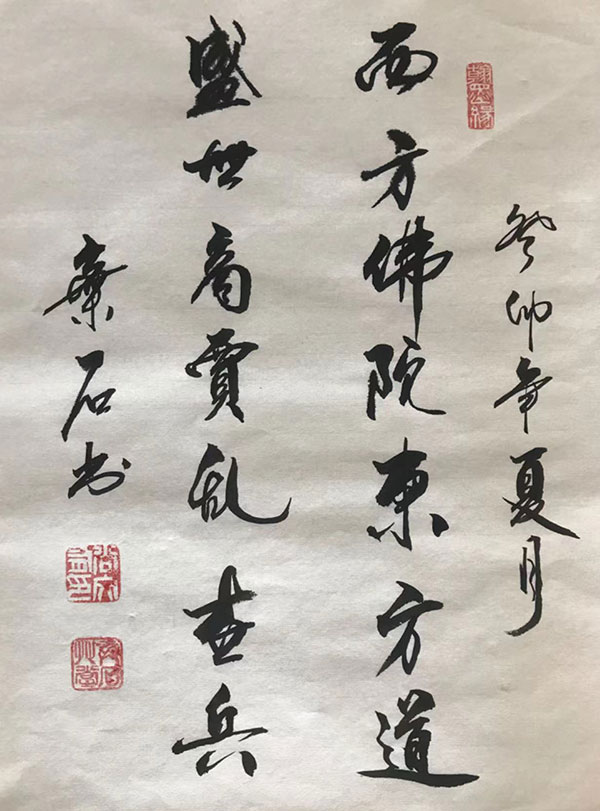 翰墨緣
癸卯年夏月
西方佛院東方道
盛世商賈乱世兵
棄石书